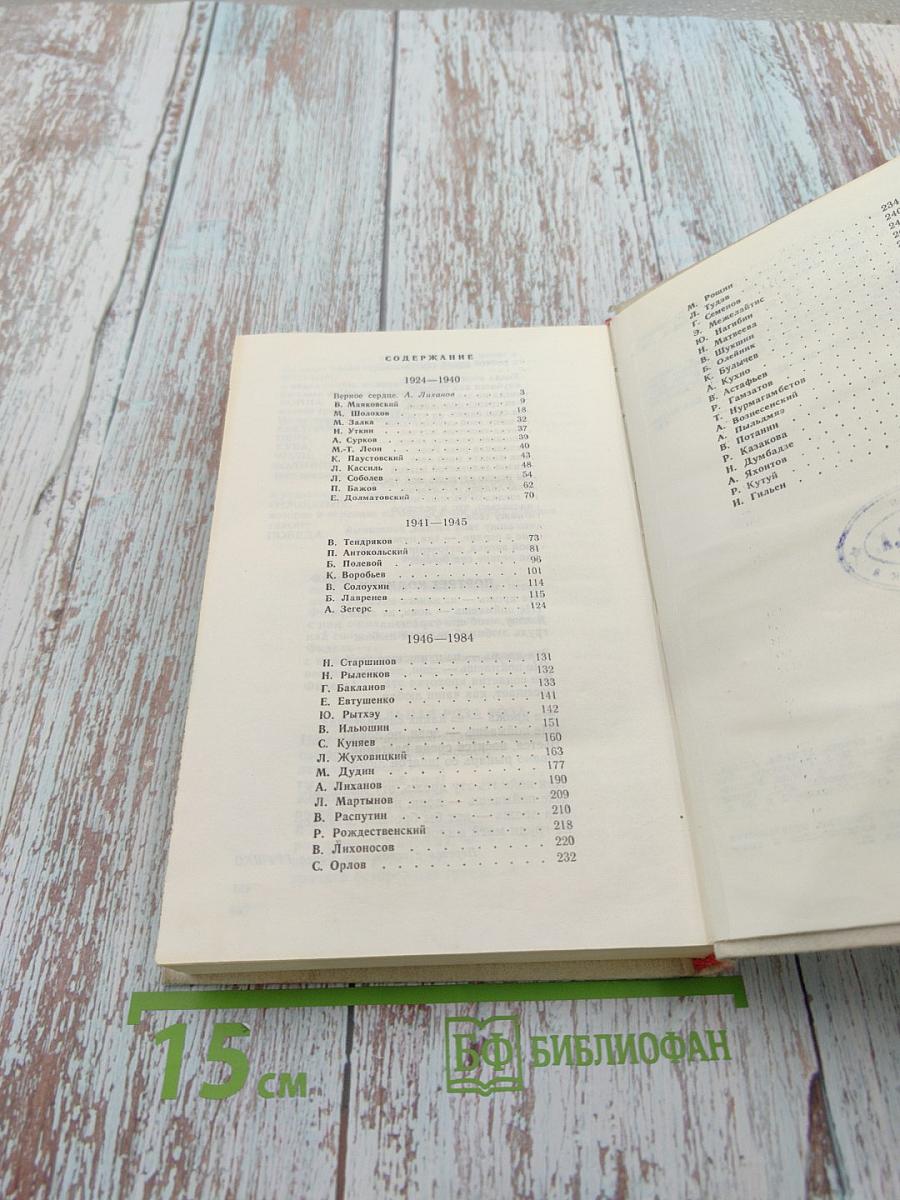 СОДЕРЖАНИЕ
1924—1940
Верное сердце. А. Лиханов . . . . . 3
В. Маяковский . . . . . 9
М. Шолохов . . . . . 18
М. Залка . . . . . 32
И. Уткин . . . . . 37
А. Сурков . . . . . 39
М.-Т. Леон . . . . . 40
К. Паустовский . . . . . 43
Л. Кассиль . . . . . 48
Л. Соболев . . . . . 54
П. Бажов . . . . . 62
Е. Долматовский . . . . . 70
1941—1945
В. Тендряков . . . . . 73
П. Антокольский . . . . . 81
Б. Полевой . . . . . 96
К. Воробьев . . . . . 101
В. Солоухин . . . . . 114
Б. Лавренев . . . . . 115
А. Зегерс . . . . . 124
1946—1984
Н. Старшинов . . . . . 131
Н. Рыленков . . . . . 132
Г. Бакланов . . . . . 133
Е. Евтушенко . . . . . 141
Ю. Рытхэу . . . . . 142
В. Ильюшин . . . . . 151
С. Куняев . . . . . 160
Л. Жуховицкий . . . . . 163
М. Дудин . . . . . 177
А. Лиханов . . . . . 190
Л. Мартынов . . . . . 209
В. Распутин . . . . . 210
Р. Рождественский . . . . . 218
В. Лихоносов . . . . . 220
С. Орлов . . . . . 232
М. Рощин . . . . . 234
Л. Тудэв
Г. Семенов
Э. Межелайтис
Ю. Нагибин
Н. Матвеева
В. Шукшин
Б. Олейник
К. Булычев
А. Кухно
В. Астафьев
Р. Гамзатов
Т. Нурмагамбетов
А. Вознесенский
А. Пыльдмяэ
В. Потанин
Р. Казакова
Н. Думбадзе
А. Яхонтов
Р. Кутуй
И. Гильен
15 см
БФ БИБЛИОФАН